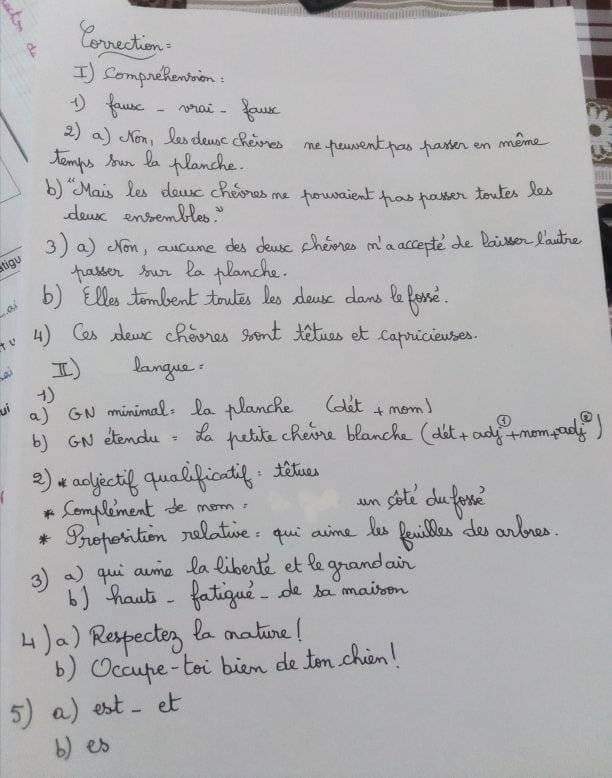 Correction:
I) Compréhension:
1) faux - vrai - faux
2) a) Non, les deux chèvres ne peuvent pas passer en même
temps sur la planche.
b) "Mais les deux chèvres ne pouvaient pas passer toutes les
deux ensembles."
3) a) Non, aucune des deux chèvres n'a accepté de laisser l'autre
passer sur la planche.
b) Elles tombent toutes les deux dans le fossé.
4) Ces deux chèvres sont têtues et capricieuses.
II) langue:
1)
a) GN minimal: la planche (dét + nom)
b) GN étendu = La petite chèvre blanche (dét + adj ① + nom + adj ②)
2) * adjectif qualificatif: têtues
* Complément de nom: un côté du fossé
* Proposition relative: qui aime les feuilles des arbres.
3) a) qui aime la liberté et le grand air
b) hauts - fatigué - de sa maison
4) a) Respectez la nature!
b) Occupe-toi bien de ton chien!
5) a) est - et
b) es